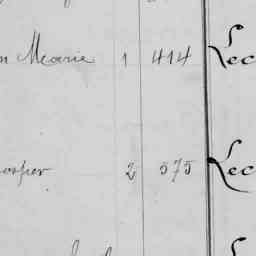 n Marie 1 414 Lec
osper 2 575 Lec